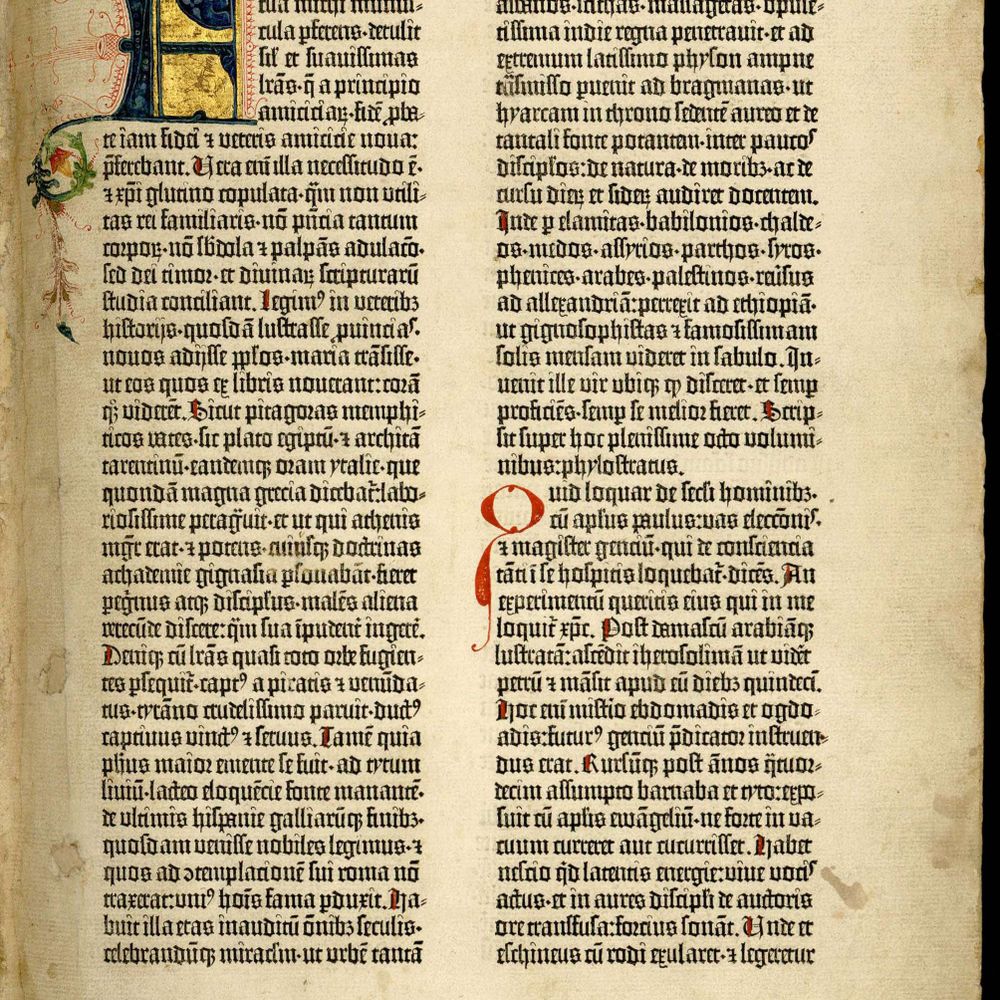 tua michi munus-
cula p̄ferens. detulit
sil̓ et suauissimas
lr̄as. q̄ a principio
amiciciaꝝ. fidē ꝓba-
te iam fidei ⁊ veteris amicicie noua:
p̄ferebant. Vera eni̅ illa necessitudo ē.
⁊ xp̄i glutino copulata. q̄m non vtili-
tas rei familiaris. nō pn̄cia tantum
corpoꝝ. nō sb̓dola ⁊ palpās adulaco̅.
sed dei timor. et diuinaꝝ scripturarū
studia conciliant. Legimꝰ in veteribꝫ
historijs. quosdā lustrasse ꝓuincias.
nouos adijsse ppl̓os. maria trāsisse.
ut eos quos ex libris nouerant: corā
qꝫ viderēt. Sicut pitagoras memphi-
ticos vates. sic plato egiptū. ⁊ architā
tarentinū. eandemqꝫ oram ytalie. que
quondā magna grecia dicebat̄: labo-
riosissime peragrauit. et ut qui athenis
mgr̄ erat. ⁊ potens. cuiusqꝫ doctrinas
achademie gignasia ꝑsonabāt. fieret
peg̓nus atqꝫ discipl̓us. malēs aliena
verecūde discere: q̄m sua ipudent̄ ingerē.
Deniqꝫ cū lr̄as quasi toto orbe fugien-
tes ꝑsequit̄. captꝰ a piratis ⁊ venūda-
tus. tyrāno crudelissimo paruit. ductꝰ
captiuus vinctꝰ ⁊ seruus. Tamē quia
ph̓us maior emente se fuit. ad tytum
liuiū. lacteo eloquēcie fonte manantē.
de vltimis hispanie galliarūqꝫ finibꝫ.
quosdam venisse nobiles legimus. ⁊
quos ad ↄtemplacionē sui roma nō
traxerat: vniꝰ hoīs fama ꝑduxit. Ha-
buit illa etas inauditū oīnibꝫ seculis.
celebrandūqꝫ miraclm̄. ut vrbē tantā
albanos. scithas. massagetas. opule-
tissima indie regna penetrauit. et ad
extremum latissimo physon ampne
trāsmisso puenit ad bragmanas. ut
hyarcam in throno sedentē aureo et de
tantali fonte potantem. inter paucos
discipl̓os: de natura. de moribꝫ. ac de
cursu dieꝝ et sideꝝ audiret docentem.
Inde p elamitas. babilonios. chalde-
os. medos. assyrios. parthos. syros.
phenices. arabes. palestinos. reūsus
ad allexandriā: perrexit ad ethiopiā.
ut gignosophistas ⁊ famosissimam
solis mensam videret in sabulo. In-
uenit ille vir vbiqꝫ qꝫ disceret. et semp
proficiēs. semp se melior fieret. Scrip-
sit super hoc plenissime octo volumi-
nibus: phylostratus.
Quid loquar de secli hominibꝫ.
cū apl̓us paulus: vas eleccōnis.
⁊ magister genciū. qui de consciencia
tāti ī se hospitis loquebat̄. dicēs. An
experimentū queritis eius qui in me
loquit̄ xp̄c. Post damascū arabiāqꝫ
lustratā: ascēdit iherosolimā ut vidēt
petrū ⁊ māsit apud eū diebꝫ quindeci̅.
Hoc eni̅ misterio ebdomadis et ogdo-
adis: futurꝰ genciū p̄dicator instruen-
dus erat. Rursūqꝫ post ānos q̄tuor-
decim assumpto barnaba et tyto: expo-
suit cū apl̓is ewāgeliū. ne forte in va-
cuum curreret aut cucurrisset. Habet
nescio qd̓ latentis energie: viue vocis
actus. et in aures discipl̓i de auctoris
ore transfusa: forcius sonat̄. Unde et
eschineus cū rodi exularet. ⁊ legeretur